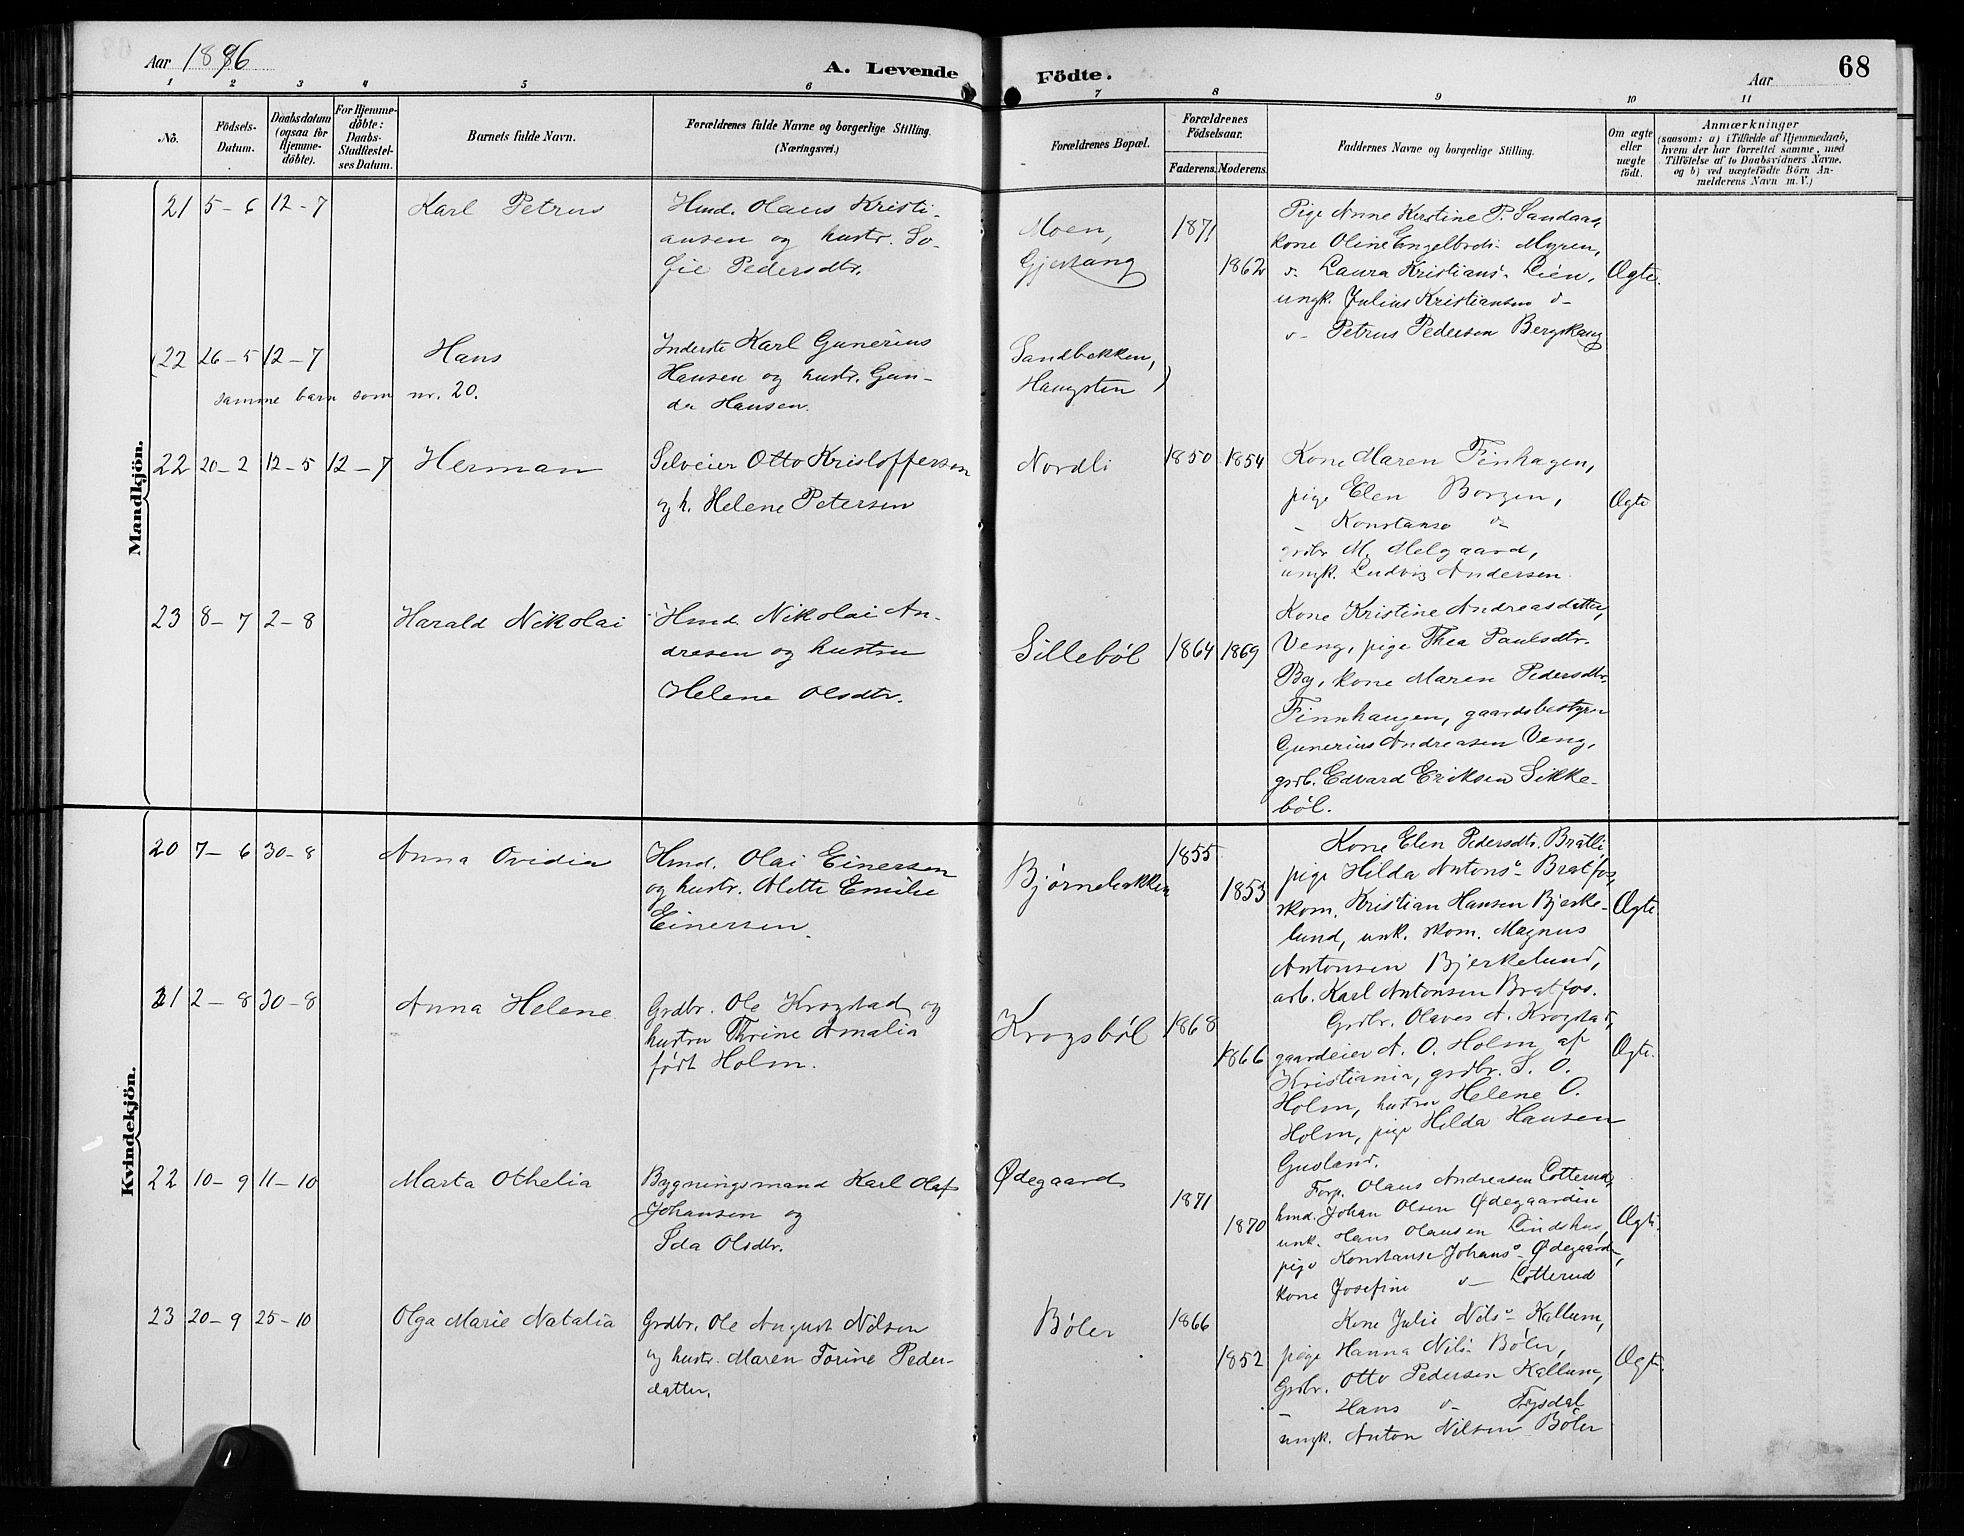 Aar 1896
A. Levende Födte.
Aar
68
1 2 3 4 5 6 7 8 9 10 11
No.
Födsels-
Datum.
Daabsdatum
(ogsaa for
Hjemme-
döbte).
For Hjemme-
döbte:
Daabs-
Stadfæstel-
ses Datum.
Barnets fulde Navn.
Forældrenes fulde Navne og borgerlige Stilling.
(Næringsvei.)
Forældrenes Bopæl.
Forældrenes
Födselsaar.
Faderens. Moderens.
Faddernes Navne og borgerlige Stilling.
Om ægte
eller
uægte
födt.
Anmærkninger
(saasom: a) i Tilfælde af Hjemmedaab,
hvem der har forrettet samme, med
Tilföielse af to Daabsvidners Navne.
og b) ved uægtefödte Börn An-
melderens Navn m. V.)
Mandkjön.
21 5-6 12-7
Karl Petrus
Hmd. Olaus Kristi-
ansen og hustr. So-
fie Pedersdtr.
Moen,
1871
1862
Pige Anne Kirstine P. Sandaas,
kone Oline Engelbrets- Myren,
- Laura Kristians- Lien,
ungk. Julius Kristiansen -
- Petrus Pedersen Berghaug
Ægte.
(22 26-5 12-7
samme barn som nr. 20.
Hans
Inderste Karl Gunerius
Hansen og hustr. Gun-
da Hansen.
Sandbekken,
Haugsten )
22 20-2 12-5 12-7
Herman
Selveier Otto Kristoffersen
og h. Helene Petersen
Nordli
1850 1854
Kone Maren Finhagen,
pige Elen Borgen,
- Konstanse -
grdbr. M. Melgaard,
ungk. Ludvig Andersen
Ægte
23 8-7 2-8
Harald Nikolai
Hmd. Nikolai An-
dresen og hustru
Helene Olsdtr.
Sillebøl
1864 1869
Kone Kristine Andreasdatter,
Veng, pige Thea Paulsdtr.
By, kone Maren Pedersdtr.
Finnhaugen, gaardsbestyrer
Gunerius Andreasen Veng,
grdb. Edvard Eriksen Sikke-
bøl.
Kvindekjön.
20 7-6 30-8
Anna Ovidia
Hmd. Olai Einersen
og hustr. Mette Emilie
Einersen.
Bjørnebakken
1855
1853
Kone Elen Pedersdtr. Bratli
pige Hilda Antons- Bratfos,
skom. Kristian Hansen Bjerke-
lund, unk. skom. Magnus
Antonsen Bjerkelund,
arb. Karl Antonsen Bratfos.
Ægte.
21 2-8 30-8
Anna Helene
Grdbr. Ole Krogstad og
hustru Thrine Amalia
født Holm.
Krogsbøl
1868
1866
Grdbr. Olaves A. Krogstad,
gaardeier A. O. Holm af
Kristiania, grdbr. S. O.
Holm, hustru Helene O.
Holm, pige Hilda Hansen
Gusland.
Ægte.
22 10-9 11-10
Marta Othelia
Bygningsmand Karl Olaf
Johansen og
Ida Olsdtr.
Ødegaard
1871
1870
Forp. Olaus Andreasen Lotterud,
hmd. Johan Olsen Ødegaarden
unk. Hans Olausen Lindshus,
pige Konstanse Johans- Ødegaarden,
kone Josefine - Lotterud
Ægte.
23 20-9 25-10
Olga Marie Natalia
Grdbr. Ole August Nilsen
og hustr. Maren Torine Peder-
datter.
Bøler
1866
1852
Kone Julie Nils- Kallum,
pige Hanna Nils- Bøler,
Grdbr. Otto Pedersen Kallum,
- Hans - Frysdal
ungk. Anton Nilsen Bøler
Ægte.